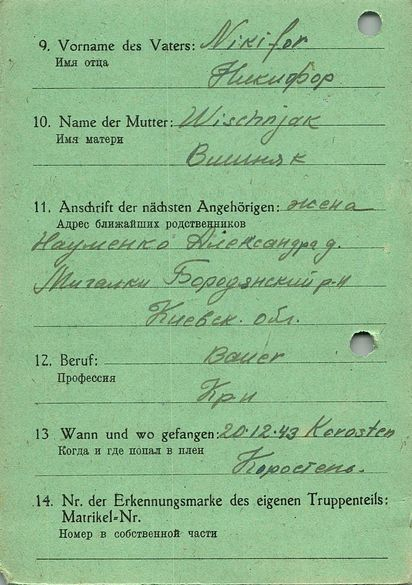 9. Vorname des Vaters: Nikifor
Имя отца
Никифор
10. Name der Mutter: Wischnjak
Имя матери
Вишняк
11. Anschrift der nächsten Angehörigen: жена
Адрес ближайших родственников
Науменко Александра д.
Мигалки Бородянский р-н
Киевск. обл.
12. Beruf: Bauer
Профессия
Кр-н
13 Wann und wo gefangen: 20.12.43 Korosten
Когда и где попал в плен
Коростень.
14. Nr. der Erkennungsmarke des eigenen Truppenteils:
Matrikel-Nr.
Номер в собственной части